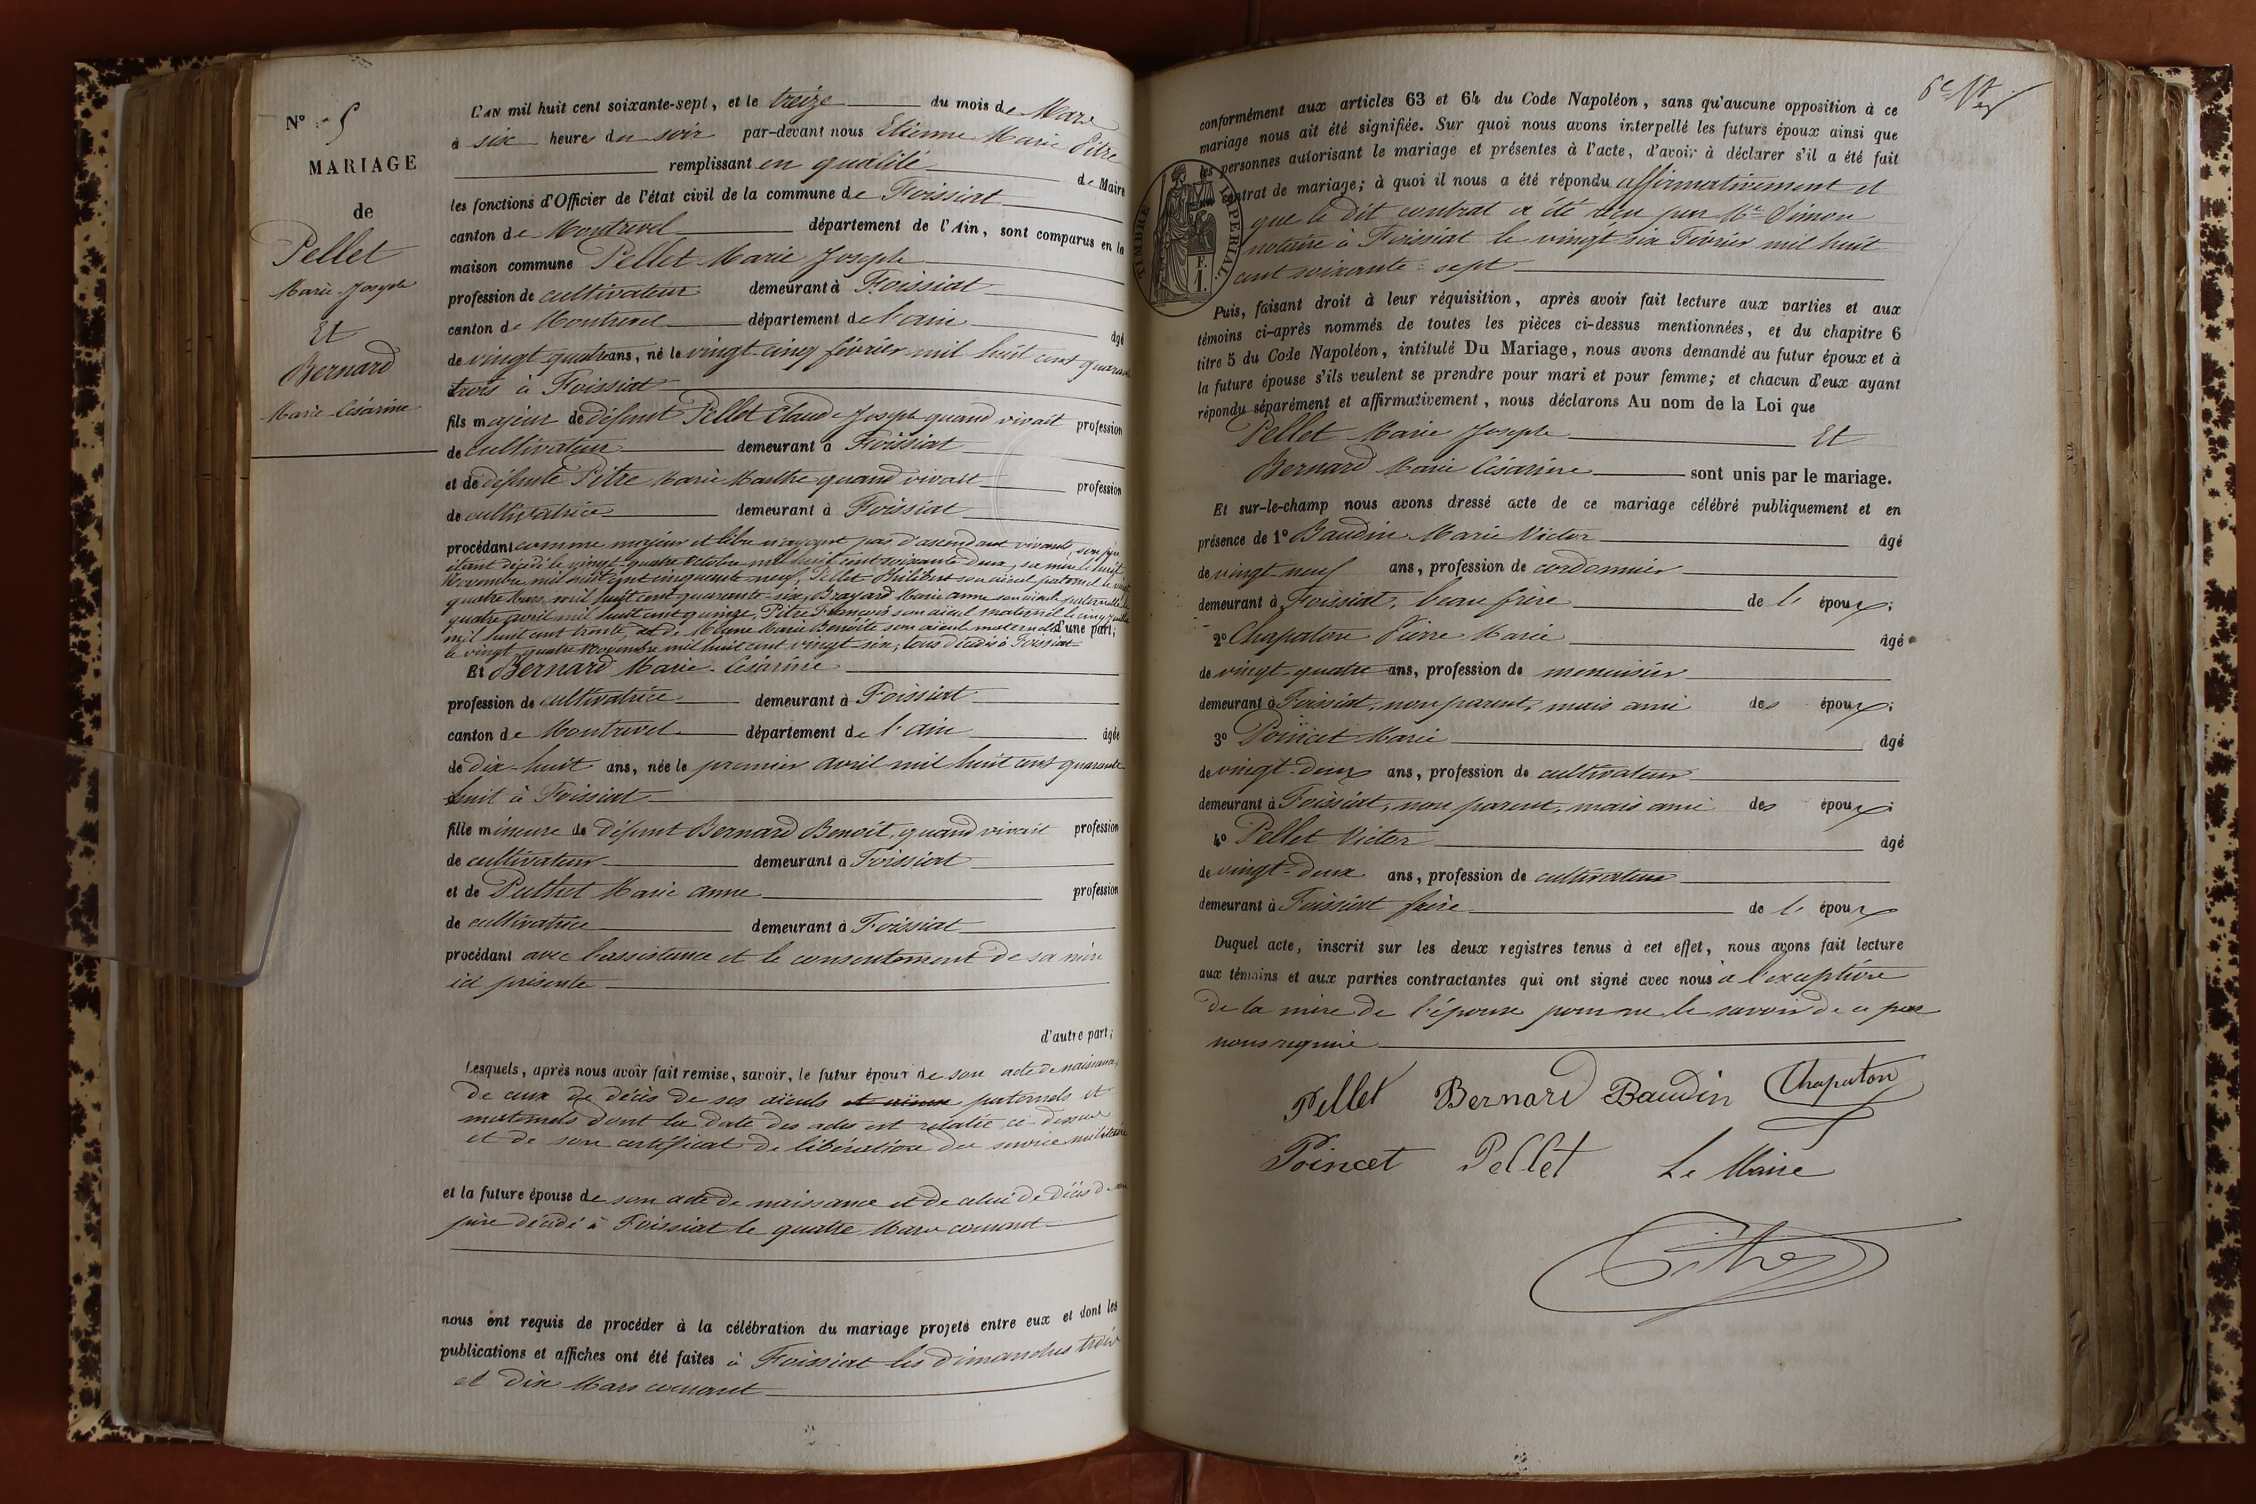 N° 5
MARIAGE
de
Pellet
Marie-Joseph
Et
Bernard
Marie-Césarine
L'AN mil huit cent soixante-sept, et le treize du mois de Mars
à six heures du soir par-devant nous Etienne Marie Pitre
remplissant en qualité de Maire
les fonctions d'Officier de l'état civil de la commune de Foissiat
canton de Montrevel département de l'Ain, sont comparus en la
maison commune Pellet Marie Joseph
profession de cultivateur demeurant à Foissiat
canton de Montrevel département de l'ain âgé
de vingt quatre ans, né le vingt-cinq février mil huit cent quarante
trois à Foissiat
fils majeur de défunt Pellet Claude Joseph quand vivait profession
de cultivateur demeurant à Foissiat
et de défunte Pitre Marie Marthe quand vivait profession
de cultivatrice demeurant à Foissiat
procédant comme majeur et libre n'ayant pas d'ascendant vivant, son père
étant décédé le vingt-quatre octobre mil huit cent soixante deux, sa mère le huit
Novembre mil huit cent cinquante neuf, Pellet Philibert son aïeul paternel le vingt
quatre Mars mil huit cent quarante-six, Brayard Marie anne son aïeule paternelle le
quatre avril mil huit cent quinze, Pitre François son aïeul maternel le cinq juillet
mil huit cent trente, et de Marie Benoîte son aïeule maternelle d'une part;
le vingt quatre Novembre mil huit cent vingt-six; tous décédés à Foissiat
Et Bernard Marie-Césarine
profession de cultivatrice demeurant à Foissiat
canton de Montrevel département de l'ain âgée
de dix-huit ans, née le premier avril mil huit cent quarante
huit à Foissiat
fille mineure de défunt Bernard Benoît, quand vivait profession
de cultivateur demeurant à Foissiat
et de Puthet Marie anne profession
de cultivatrice demeurant à Foissiat
procédant avec l'assistance et le consentement de sa mère
ici présente
d'autre part;
Lesquels, après nous avoir fait remise, savoir, le futur époux de son acte de naissance,
de ceux de décès de ses aïeuls paternels et
maternels dont la date des actes est relatée ci-dessus
et de son certificat de libération du service militaire
et la future épouse de son acte de naissance et de celui de décès de son
père décédé à Foissiat le quatre Mars courant
nous ont requis de procéder à la célébration du mariage projeté entre eux et dont les
publications et affiches ont été faites à Foissiat les dimanches trois
et dix Mars courant
conformément aux articles 63 et 64 du Code Napoléon, sans qu'aucune opposition à ce
mariage nous ait été signifiée. Sur quoi nous avons interpellé les futurs époux ainsi que
les personnes autorisant le mariage et présentes à l'acte, d'avoir à déclarer s'il a été fait
contrat de mariage; à quoi il nous a été répondu affirmativement et
que le dit contrat a été reçu par Me Simon
notaire à Foissiat le vingt six Février mil huit
cent soixante-sept
TIMBRE IMPERIAL
F.
1.
Puis, faisant droit à leur réquisition, après avoir fait lecture aux parties et aux
témoins ci-après nommés de toutes les pièces ci-dessus mentionnées, et du chapitre 6
titre 5 du Code Napoléon, intitulé Du Mariage, nous avons demandé au futur époux et à
la future épouse s'ils veulent se prendre pour mari et pour femme; et chacun d'eux ayant
répondu séparément et affirmativement, nous déclarons Au nom de la Loi que
Pellet Marie Joseph Et
Bernard Marie Césarine sont unis par le mariage.
Et sur-le-champ nous avons dressé acte de ce mariage célébré publiquement et en
présence de 1° Baudin Marie Victor âgé
de vingt-neuf ans, profession de cordonnier
demeurant à Foissiat, beau frère de l' époux;
2° Chapaton Pierre Marie âgé
de vingt-quatre ans, profession de menuisier
demeurant à Foissiat, non parent, mais ami des époux;
3° Poincet Marie âgé
de vingt-deux ans, profession de cultivateur
demeurant à Foissiat, non parent, mais ami des époux;
4° Pellet Victor âgé
de vingt-deux ans, profession de cultivateur
demeurant à Foissiat frère de l' époux
Duquel acte, inscrit sur les deux registres tenus à cet effet, nous avons fait lecture
aux témoins et aux parties contractantes qui ont signé avec nous à l'exception
de la mère de l'épouse pour ne le savoir de ce par
nous requise
Pellet Bernard Baudin Chapaton
Poincet Pellet Le Maire
Pitre